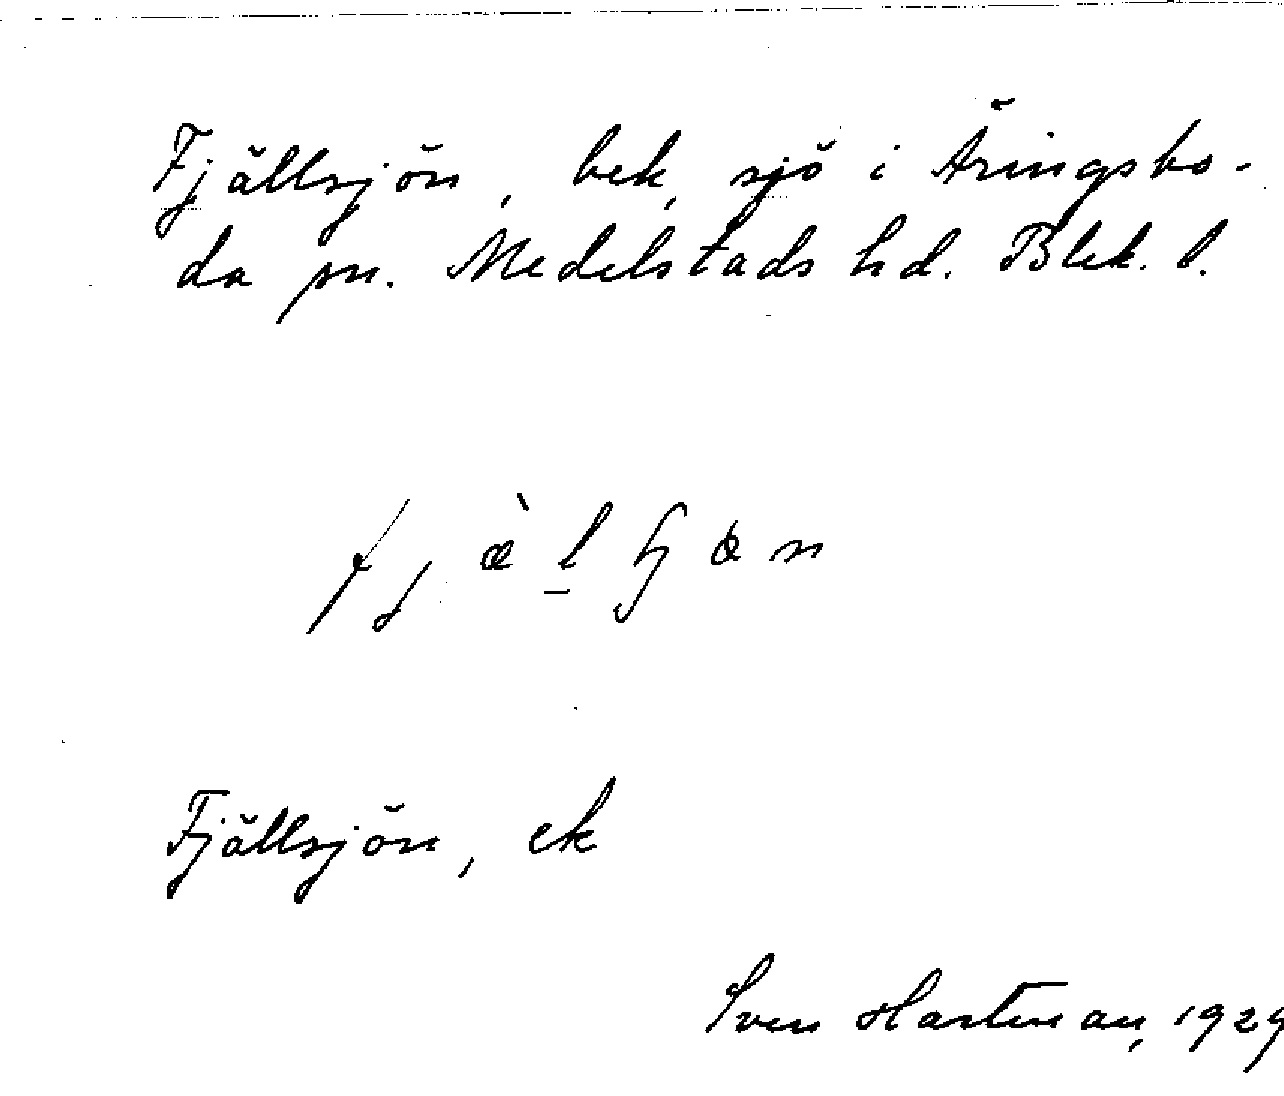 Fjällsjön, bek, sjö i Åringsbo-
da sn. Medelstads hd. Blek. l.
fjæ̀l̠ɧøn
Fjällsjön, ek
Sven Hartman, 1929